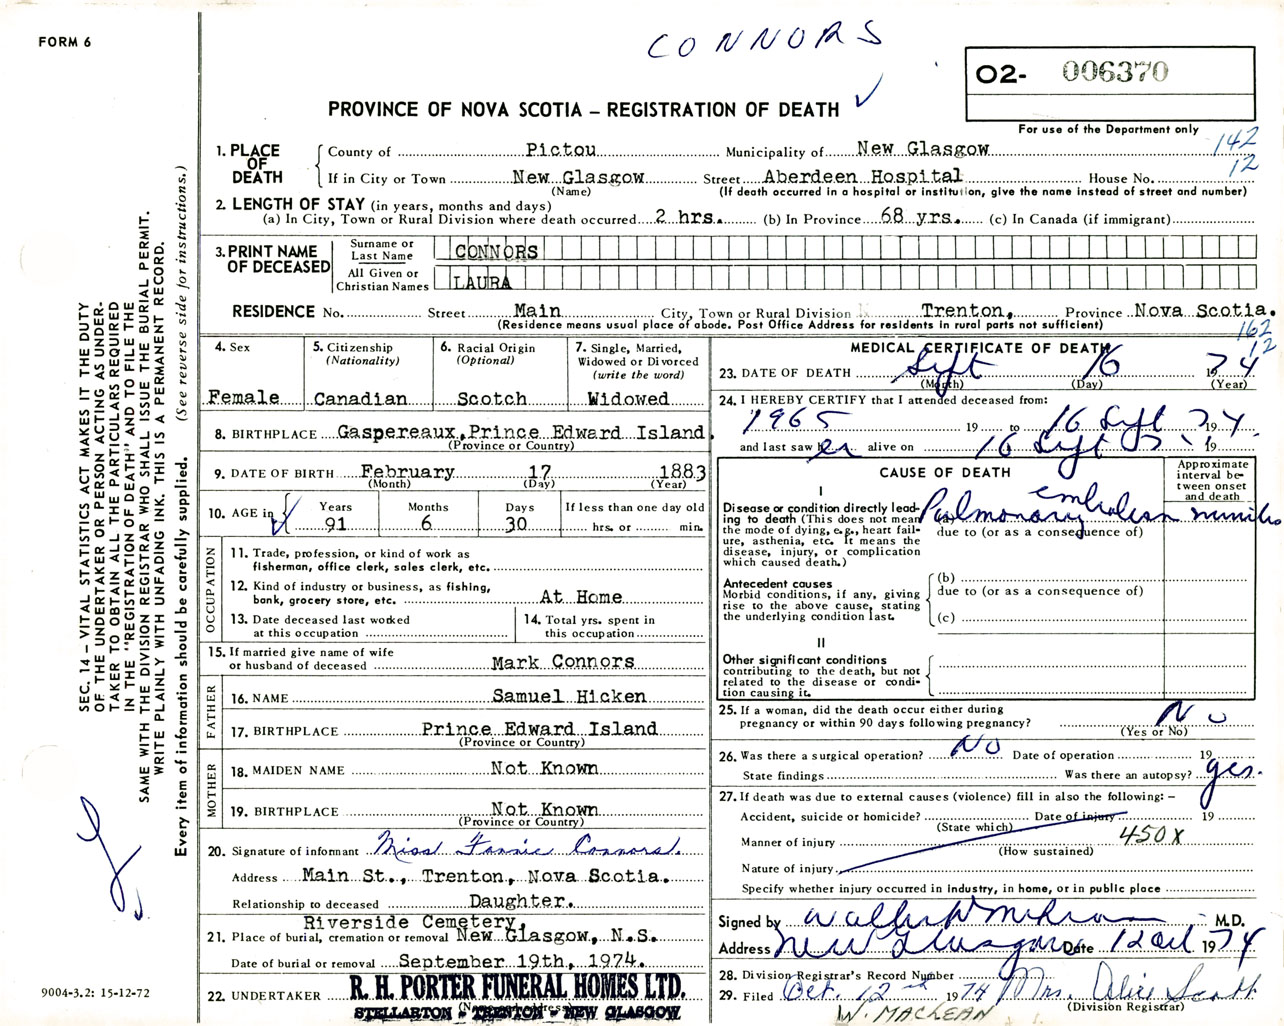 FORM 6
CONNORS
O2- 006370
PROVINCE OF NOVA SCOTIA – REGISTRATION OF DEATH
For use of the Department only
142
12
1. PLACE OF DEATH
County of Pictou Municipality of New Glasgow
If in City or Town New Glasgow Street Aberdeen Hospital House No.
(Name) (If death occurred in a hospital or institution, give the name instead of street and number)
2. LENGTH OF STAY (in years, months and days)
(a) In City, Town or Rural Division where death occurred 2 hrs. (b) In Province 68 yrs. (c) In Canada (if immigrant)
3. PRINT NAME OF DECEASED
Surname or Last Name CONNORS
All Given or Christian Names LAURA
RESIDENCE No. Street Main City, Town or Rural Division Trenton, Province Nova Scotia.
(Residence means usual place of abode. Post Office Address for residents in rural parts not sufficient)
162
12
4. Sex Female
5. Citizenship (Nationality) Canadian
6. Racial Origin (Optional) Scotch
7. Single, Married, Widowed or Divorced (write the word) Widowed
8. BIRTHPLACE Gaspereaux, Prince Edward Island.
(Province or Country)
9. DATE OF BIRTH February 17 1883
(Month) (Day) (Year)
10. AGE in Years 91 Months 6 Days 30 If less than one day old hrs. or min.
OCCUPATION
11. Trade, profession, or kind of work as fisherman, office clerk, sales clerk, etc.
12. Kind of industry or business, as fishing, bank, grocery store, etc. At Home
13. Date deceased last worked at this occupation
14. Total yrs. spent in this occupation
15. If married give name of wife or husband of deceased Mark Connors
FATHER
16. NAME Samuel Hicken
17. BIRTHPLACE Prince Edward Island
(Province or Country)
MOTHER
18. MAIDEN NAME Not Known
19. BIRTHPLACE Not Known
(Province or Country)
20. Signature of informant Miss Fannie Connors.
Address Main St., Trenton, Nova Scotia.
Relationship to deceased Daughter.
Riverside Cemetery,
21. Place of burial, cremation or removal New Glasgow, N.S.
Date of burial or removal September 19th, 1974.
22. UNDERTAKER R. H. PORTER FUNERAL HOMES LTD.
STELLARTON - TRENTON - NEW GLASGOW
MEDICAL CERTIFICATE OF DEATH
23. DATE OF DEATH Sept 16 1974
(Month) (Day) (Year)
24. I HEREBY CERTIFY that I attended deceased from:
1965 19 to 16 Sept 1974.
and last saw her alive on 16 Sept 19
CAUSE OF DEATH
Approximate interval between onset and death
I
Disease or condition directly leading to death (This does not mean the mode of dying, e.g., heart failure, asthenia, etc. It means the disease, injury, or complication which caused death.)
(a) Pulmonary embolism minutes
due to (or as a consequence of)
Antecedent causes
Morbid conditions, if any, giving rise to the above cause, stating the underlying condition last.
(b)
due to (or as a consequence of)
(c)
II
Other significant conditions contributing to the death, but not related to the disease or condition causing it.
25. If a woman, did the death occur either during pregnancy or within 90 days following pregnancy? No
(Yes or No)
26. Was there a surgical operation? No Date of operation 19
State findings Was there an autopsy? yes.
27. If death was due to external causes (violence) fill in also the following: –
Accident, suicide or homicide? Date of injury 19
(State which)
Manner of injury 450X
(How sustained)
Nature of injury
Specify whether injury occurred in industry, in home, or in public place
Signed by M.D.
Address New Glasgow Date 12 Oct 1974
28. Division Registrar's Record Number
29. Filed Oct. 12nd 1974 Mrs. Alice Scott
(Division Registrar)
W. MACLEAN
SEC. 14 – VITAL STATISTICS ACT MAKES IT THE DUTY
OF THE UNDERTAKER OR PERSON ACTING AS UNDER-
TAKER TO OBTAIN ALL THE PARTICULARS REQUIRED
IN THE "REGISTRATION OF DEATH" AND TO FILE THE
SAME WITH THE DIVISION REGISTRAR WHO SHALL ISSUE THE BURIAL PERMIT.
WRITE PLAINLY WITH UNFADING INK. THIS IS A PERMANENT RECORD.
Every item of information should be carefully supplied. (See reverse side for instructions.)
9004-3.2: 15-12-72